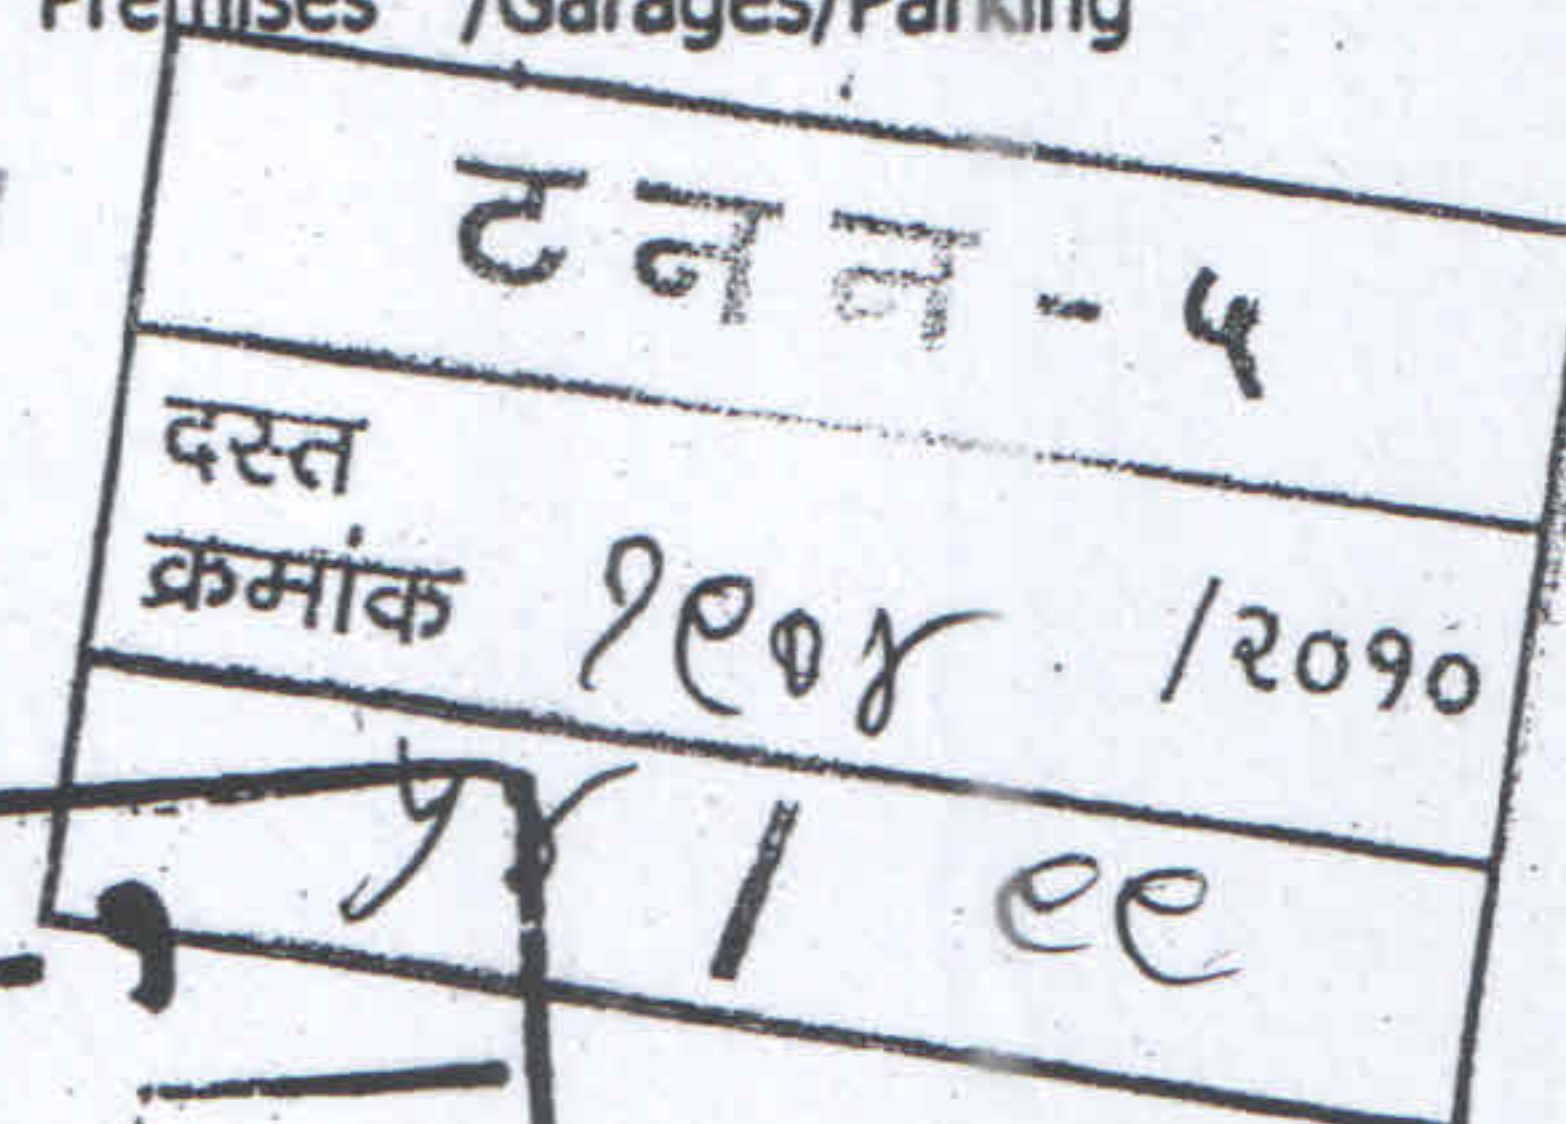 Premises /Garages/Parking
ट न न - ५
दस्त
क्रमांक १९०४ /२०१०
५४ / ९९